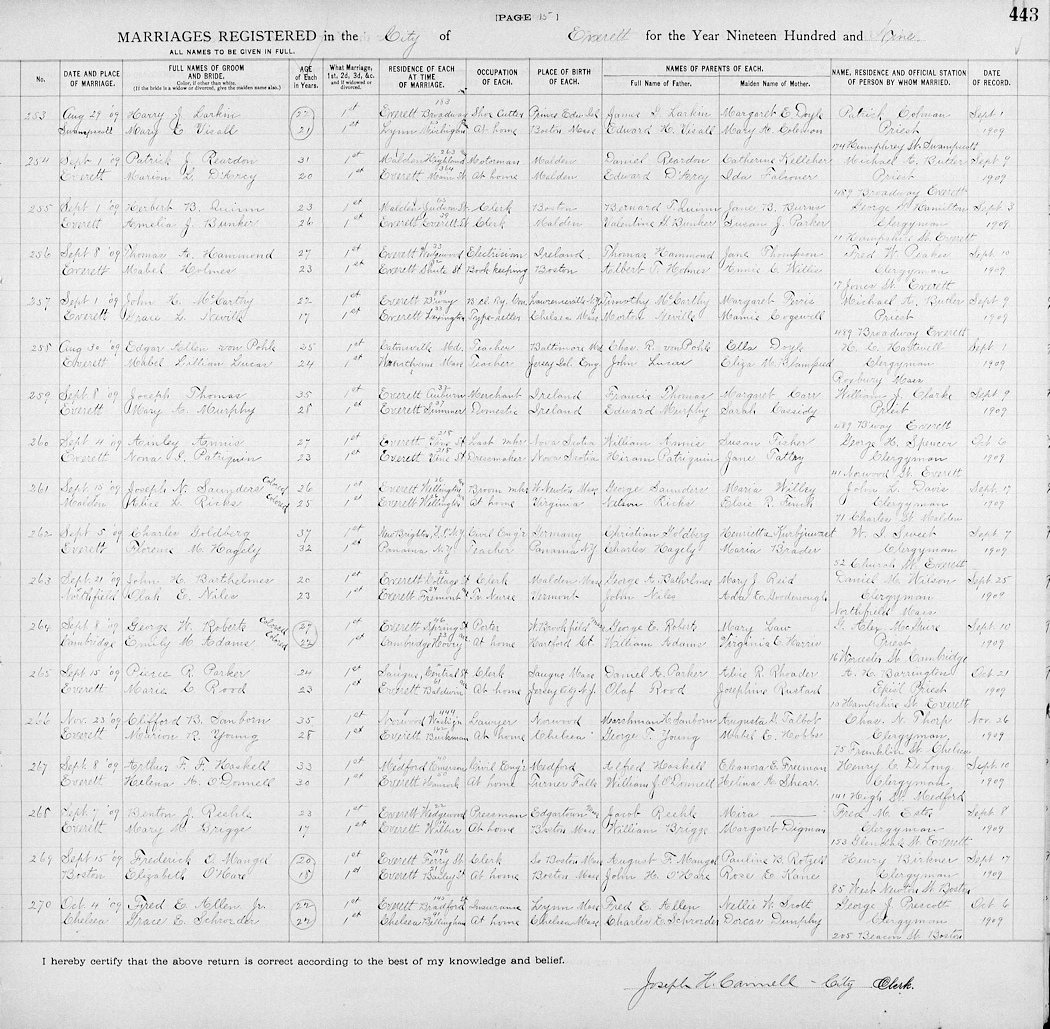 [PAGE 15 ]
443
MARRIAGES REGISTERED in the City of Everett for the Year Nineteen Hundred and Nine.
ALL NAMES TO BE GIVEN IN FULL.
No. DATE AND PLACE OF MARRIAGE. FULL NAMES OF GROOM AND BRIDE. Color, if other than white. (If the bride is a widow or divorced, give the maiden name also.) AGE of Each in Years. What Marriage, 1st, 2d, 3d, &c. and if widowed or divorced. RESIDENCE OF EACH AT TIME OF MARRIAGE. OCCUPATION OF EACH. PLACE OF BIRTH OF EACH. NAMES OF PARENTS OF EACH. Full Name of Father. Maiden Name of Mother. NAME, RESIDENCE AND OFFICIAL STATION OF PERSON BY WHOM MARRIED. DATE OF RECORD.
253 Aug 29 '09 Harry J. Larkin 22 1st Everett 183 Broadway Shoe Cutter Prince Edw Isl James G. Larkin Margaret E. Doyle Patrick Colman Sept 1
Swampscott Mary E. 21 1st Lynn At home Boston Mass Edward H. Mary A. Priest 1909
174 Humphrey St. Swampscott
254 Sept 1 '09 Patrick J. Reardon 31 1st Malden Highland Motorman Malden Daniel Reardon Catherine Kelleher Michael A. Butler Sept 9
Everett Marion L. D'Arcy 20 1st Everett At home Malden Edward D'Arcy Ida Falconer Priest 1909
489 Broadway Everett
255 Sept 1 '09 Herbert B. Quinn 23 1st Malden Judson St. Clerk Boston Bernard F. Quinn Jane B. Burns George H. Hamilton Sept 3
Everett Amelia J. Bunker 26 1st Everett Everett St Clerk Malden Valentine H. Bunker Susan J. Parker Clergyman 1909
11 Hampshire St Everett
256 Sept 8 '09 Thomas A. Hammond 27 1st Everett Wedgewood Electrician Ireland Thomas Hammond Jane Thompson Fred W. Peakes Sept. 10
Everett Mabel Holmes 23 1st Everett Shute St Bookkeeping Boston Albert T. Holmes Annie E. Willis Clergyman 1909
17 Jones St. Everett
257 Sept 1 '09 John H. McCarthy 22 1st Everett 881 Bway Timothy McCarthy Margaret Michael A. Butler Sept 9
Everett Grace L. Neville 17 1st Everett Lexington Type-setter Chelsea Mass Morton Neville Mamie Cogswell Priest 1909
489 Broadway Everett
258 Aug 30 '09 Edgar Allen von Pohle 25 1st Catonsville Md. Teacher Baltimore Md Chas. R. von Pohle Ella Doyle H. C. Hartwell Sept 1
Everett Mabel Lillian Lucas 24 1st Teacher Eng John Lucas Eliza M. Clergyman 1909
Roxbury Mass
259 Sept 8 '09 Joseph Thomas 35 1st Everett Auburn Merchant Ireland Francis Thomas Margaret Carr William J. Clarke Sept 9
Everett Mary A. Murphy 28 1st Everett Summer Domestic Ireland Edward Murphy Sarah Cassidy Priest 1909
489 Bway Everett
260 Sept 4 '09 Ainley Annis 27 1st Everett 218 Vine St Last mkr Nova Scotia William Annis Susan Fisher George H. Spencer Oct 6
Everett Nova S. Patriquin 23 1st Everett 218 Vine St Dressmaker Nova Scotia Hiram Patriquin Jane Clergyman 1909
41 Norwood St Everett
261 Sept 15 '09 Joseph N. Saunders Colored 26 1st Everett Wellington Broom mkr W. Newton Mass George Saunders Maria Willey John L. Davis Sept 17
Malden Alice L. Ricks Colored 25 1st Everett Wellington At home Virginia Nelson Ricks Elsie R. Finch Clergyman 1909
71 Charles St Malden
262 Sept 5 '09 Charles Goldberg 37 1st New Brighton, N.Y. Civil Eng'r Germany Christian Goldberg Henrietta W. I. Sweet Sept 7
Everett Florence M. Hagely 32 1st Panama N.Y. Teacher Panama N.Y. Charles Hagely Maria Brader Clergyman 1909
52 Church St. Everett
263 Sept. 21 '09 John H. Barthelmes 20 1st Everett 22 Cottage St Clerk Malden Mass George A. Barthelmes Mary J. Reid Daniel M. Wilson Sept 25
Northfield E. Niles 23 1st Everett Fremont Tr. Nurse Vermont John Niles Ada E. Goodenough Clergyman 1909
Northfield Mass
264 Sept. 8 '09 George W. Roberts Colored 27 1st Everett Spring St Porter W Brookfield Mass George E. Roberts Mary Law G. Alex McGuire Sept. 10
Cambridge Emily M. Adams Colored 22 1st Cambridge At home Hartford Ct. William Adams Virginia E. Harris Priest 1909
16 Worcester St Cambridge
265 Sept 15 '09 Pierce R. Parker 24 1st Saugus, Central St Clerk Saugus Mass Daniel A. Parker Alice R. Rhoades A. H. Barrington Oct 21
Everett Marie E Rood 23 1st Everett Baldwin At home Jersey City N.J. Olaf Rood Josephine Rustard Epis'l Priest 1909
10 Hampshire St. Everett
266 Nov. 23 '09 Clifford B. Sanborn 35 1st Norwood Wash'gn Lawyer Norwood Marshman H. Sanborn Augusta D. Talbot Chas. N. Thorp Nov. 26
Everett Marion R. Young 28 1st Everett Buckman At home Chelsea George T. Young Mabel E. Hobbs Clergyman, 1909
75 Franklin St. Chelsea
267 Sept. 8 '09 Arthur F. F. Haskell 33 1st Medford Emerson Civil Eng'r Medford Alfred Haskell Ehanora E. Freeman Henry C. DeLong Sept. 10
Everett Helena A. O'Donnell 30 1st Everett Hancock At home Turners Falls William J. O'Donnell Helena A. Shear Clergyman 1909
141 High St. Medford
268 Sept. 7 '09 Benton J. Reehle 23 1st Everett Wedgewood Pressman Edgartown Mass Jacob Reehle Mira —— Fred M. Estes Sept 8
Everett Mary M. Griggs 17 1st Everett Wilbur At home Boston Mass William Briggs Margaret Diegman Clergyman 1909
153 Glendale St. Everett
269 Sept 15 '09 Frederick E. Mangel 20 1st Everett 1176 Ferry St Clerk So Boston Mass August F. Mangel Pauline B. Rotzell Henry Birkner Sept 17
Boston Elizabeth O'Hare 18 1st Everett At home Boston Mass John H. O'Hare Rose E. Kanes Clergyman 1909
85 West Newton St Boston
270 Oct 4 '09 Fred E. Allen Jr. 22 1st Everett 145 Bradford Insurance Lynn Mass Fred E. Allen Nellie W. Trott George J. Prescott Oct 6
Chelsea Grace E. Schroder 22 1st Chelsea Bellingham At home Chelsea Mass Charles E. Schroeder Dorcas Dunphy Clergyman 1909
205 Beacon St. Boston
I hereby certify that the above return is correct according to the best of my knowledge and belief.
Joseph H. Cannell - City Clerk.